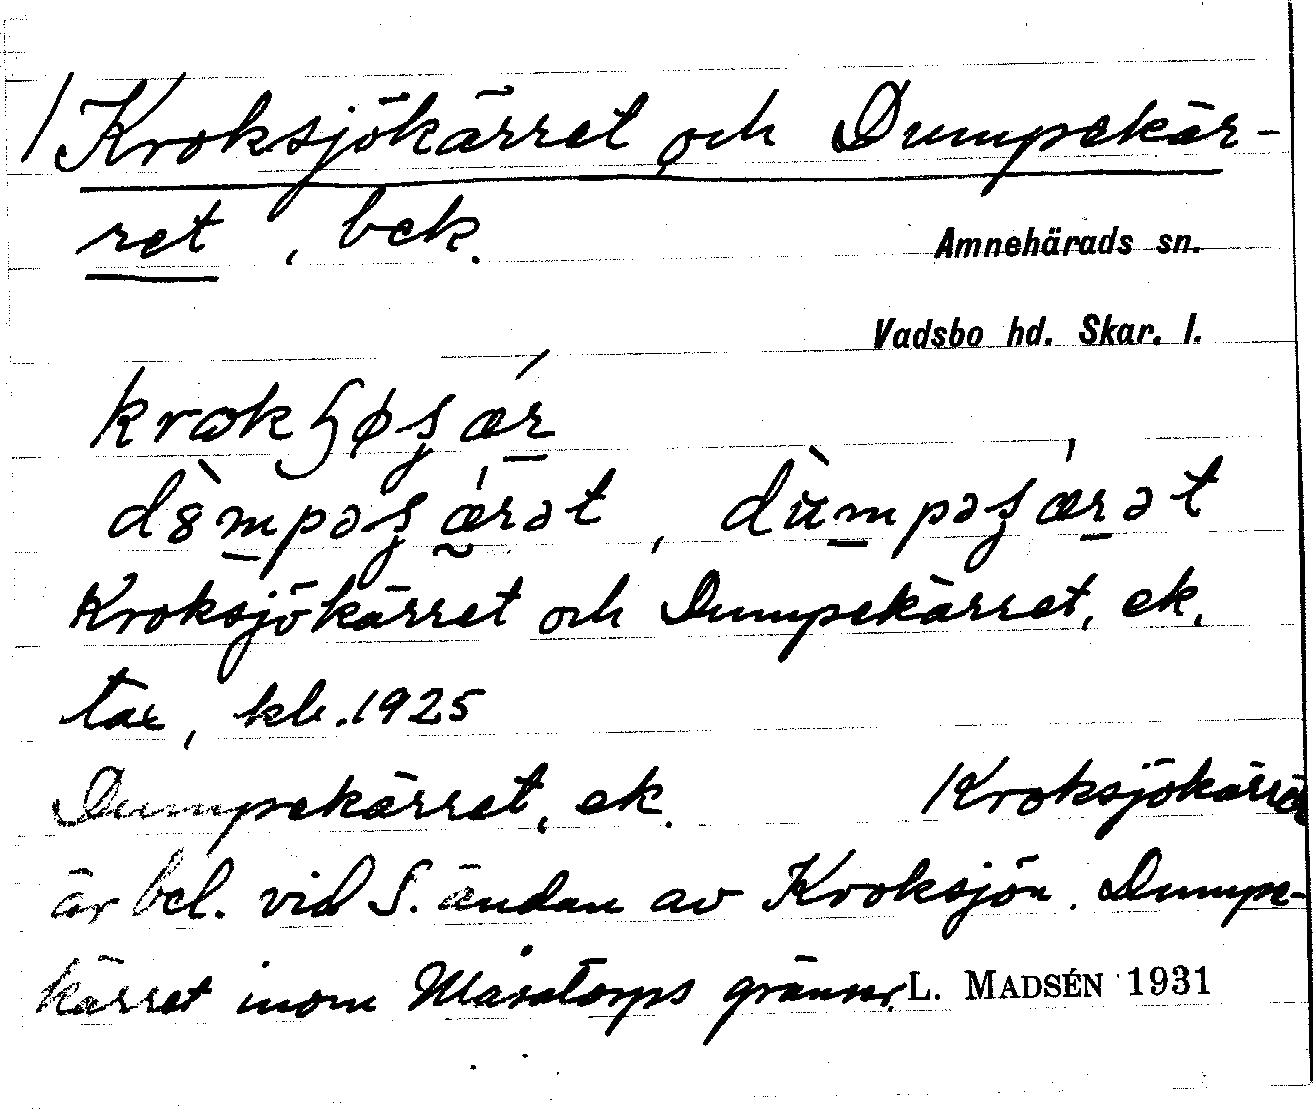 / Kroksjökärret och Dumpekär-
ret, bek.
Amnehärads sn.
Vadsbo hd. Skar. l.
Kroksjökärret och Dumpekärret, ek.
tax, kb. 1925
Dumpekärret, ek. Kroksjökärret
är bel. vid S. ändan av Kroksjön. Dumpe-
kärret inom Måsatorps gränser.
L. MADSÉN 1931